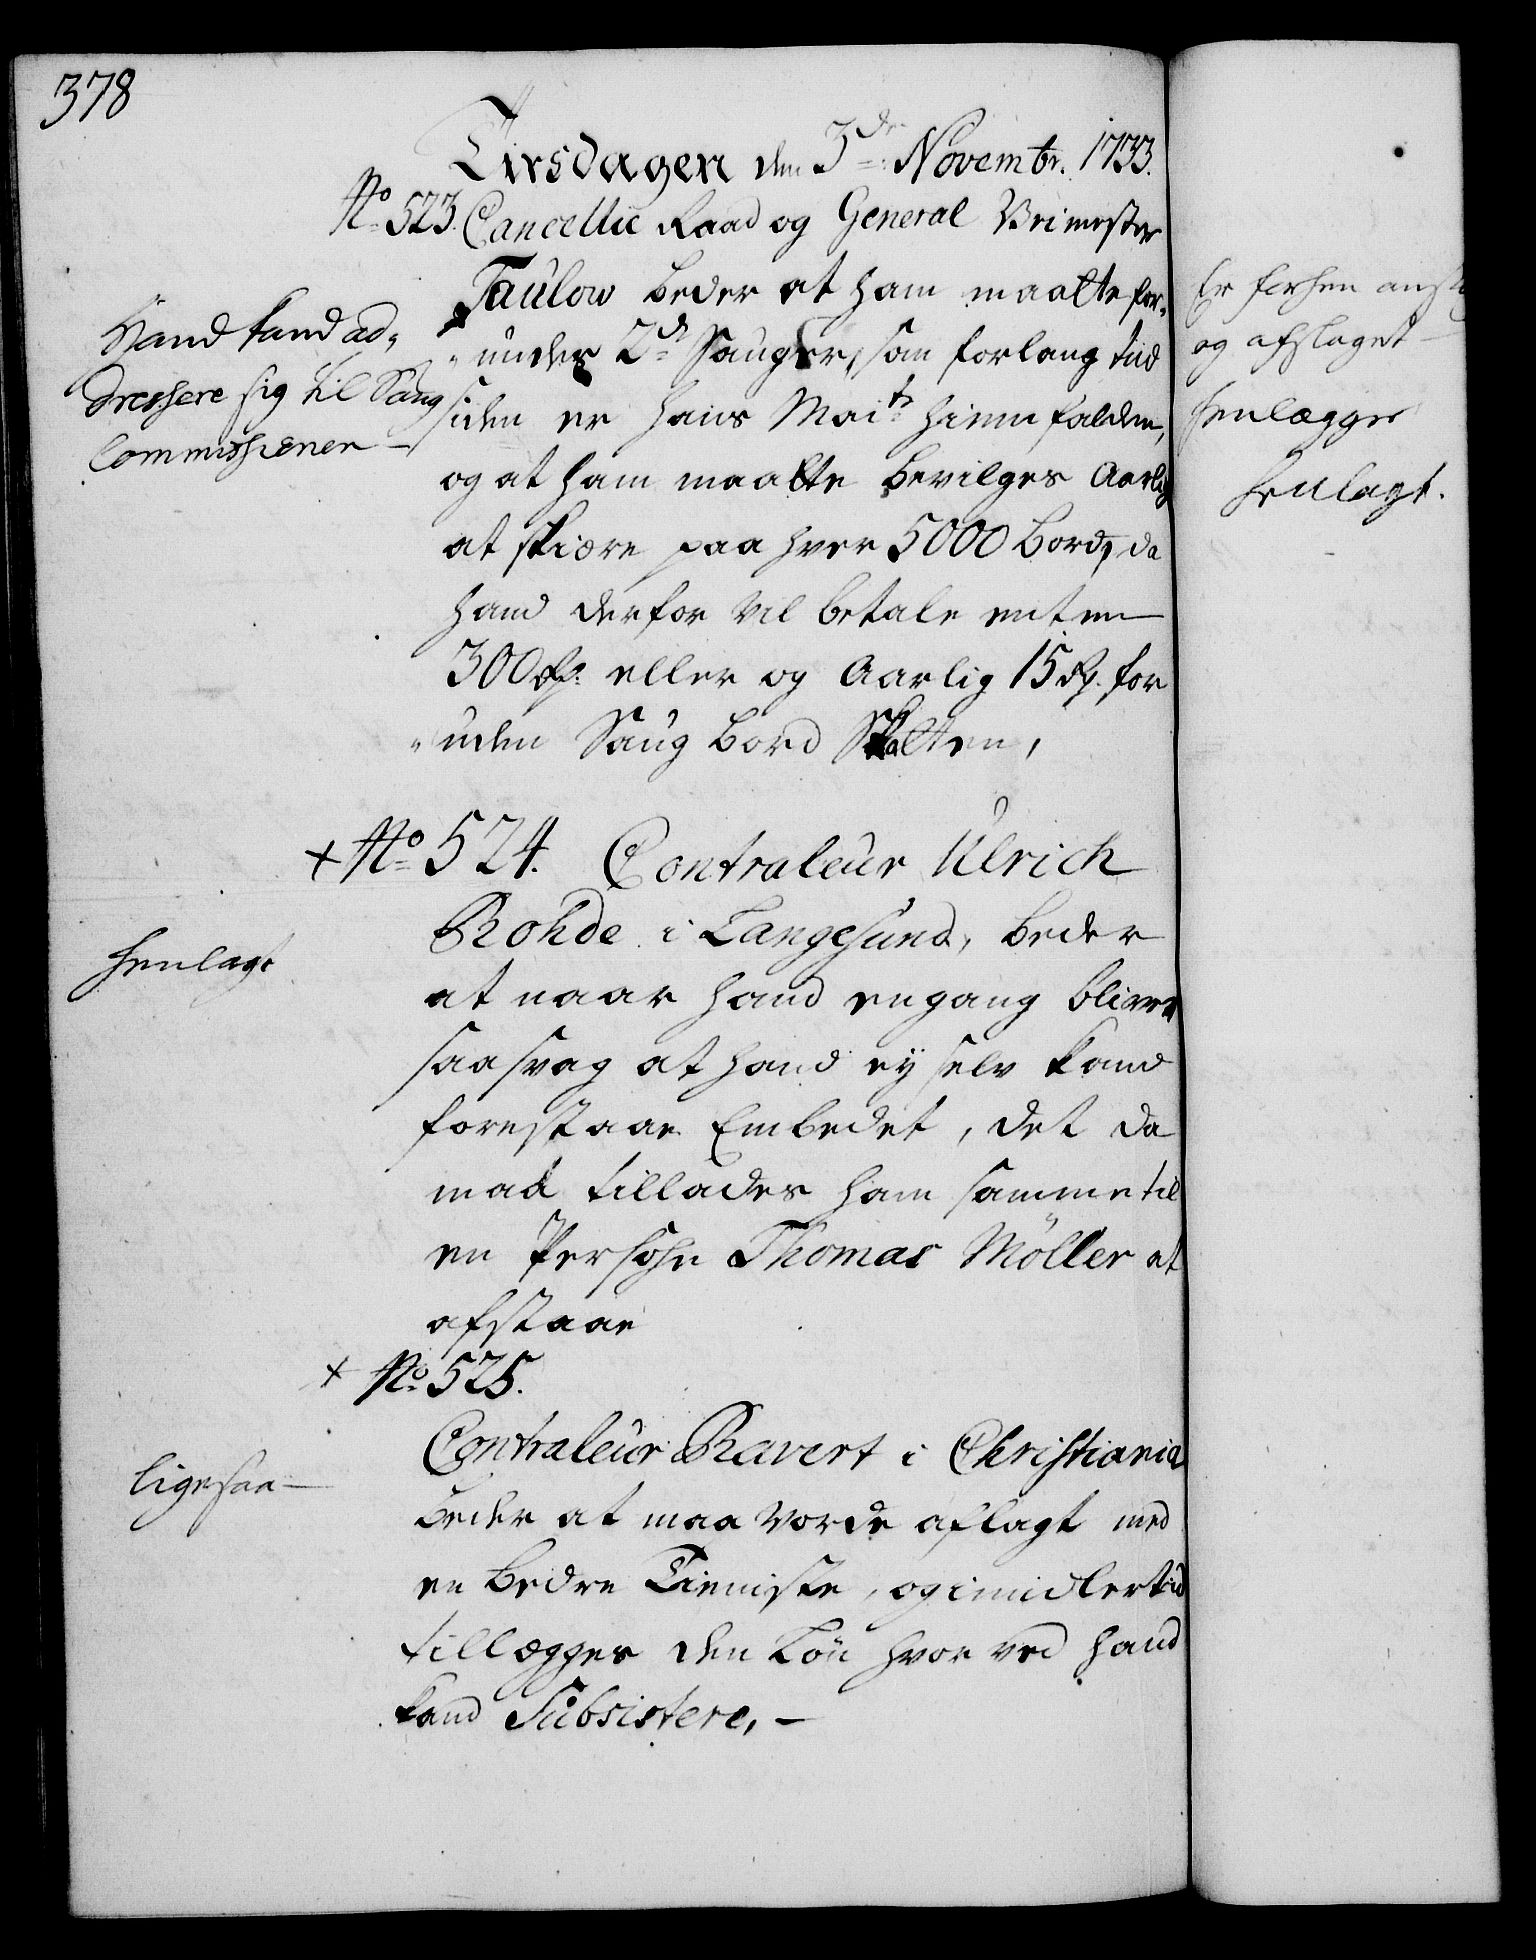 378
Tirsdagen den 3de Novembr. 1733.
No 523. Cancellie Raad og General Veimester
Taulow beder at ham maatte for„
„undes 2de Sauger, som forlang tiid
siden er hans Maits hiemfalden,
og at ham maatte bevilges Aarlig
at skiære paa hver 5000 bord, da
hand derfor vil betale enten
300 Rd. eller og Aarlig 15 Rd. for
„uden Saug bord Skatten,
Hand kand ad„
dressere sig til Saug
Commissionen —
+ No 524. Contraleur Ulrich
Rohde i Langesund, beder
at naar hand engang bliver
saa svag at hand ey selv kand
forestaae Embedet, det da
maa tillades ham samme til
en Persohn Thomas Möller at
afstaae
henlagt
+ No 525.
Contraleur Ravert i Christiania
beder at maa vorde aflagt med
en bedre Tieniste, og imidlertid
tillægges den Løn hvor ved hand
kand Subsistere, —
ligesaa —
Er forhen
og afslaget —
henlægges
henlagt.